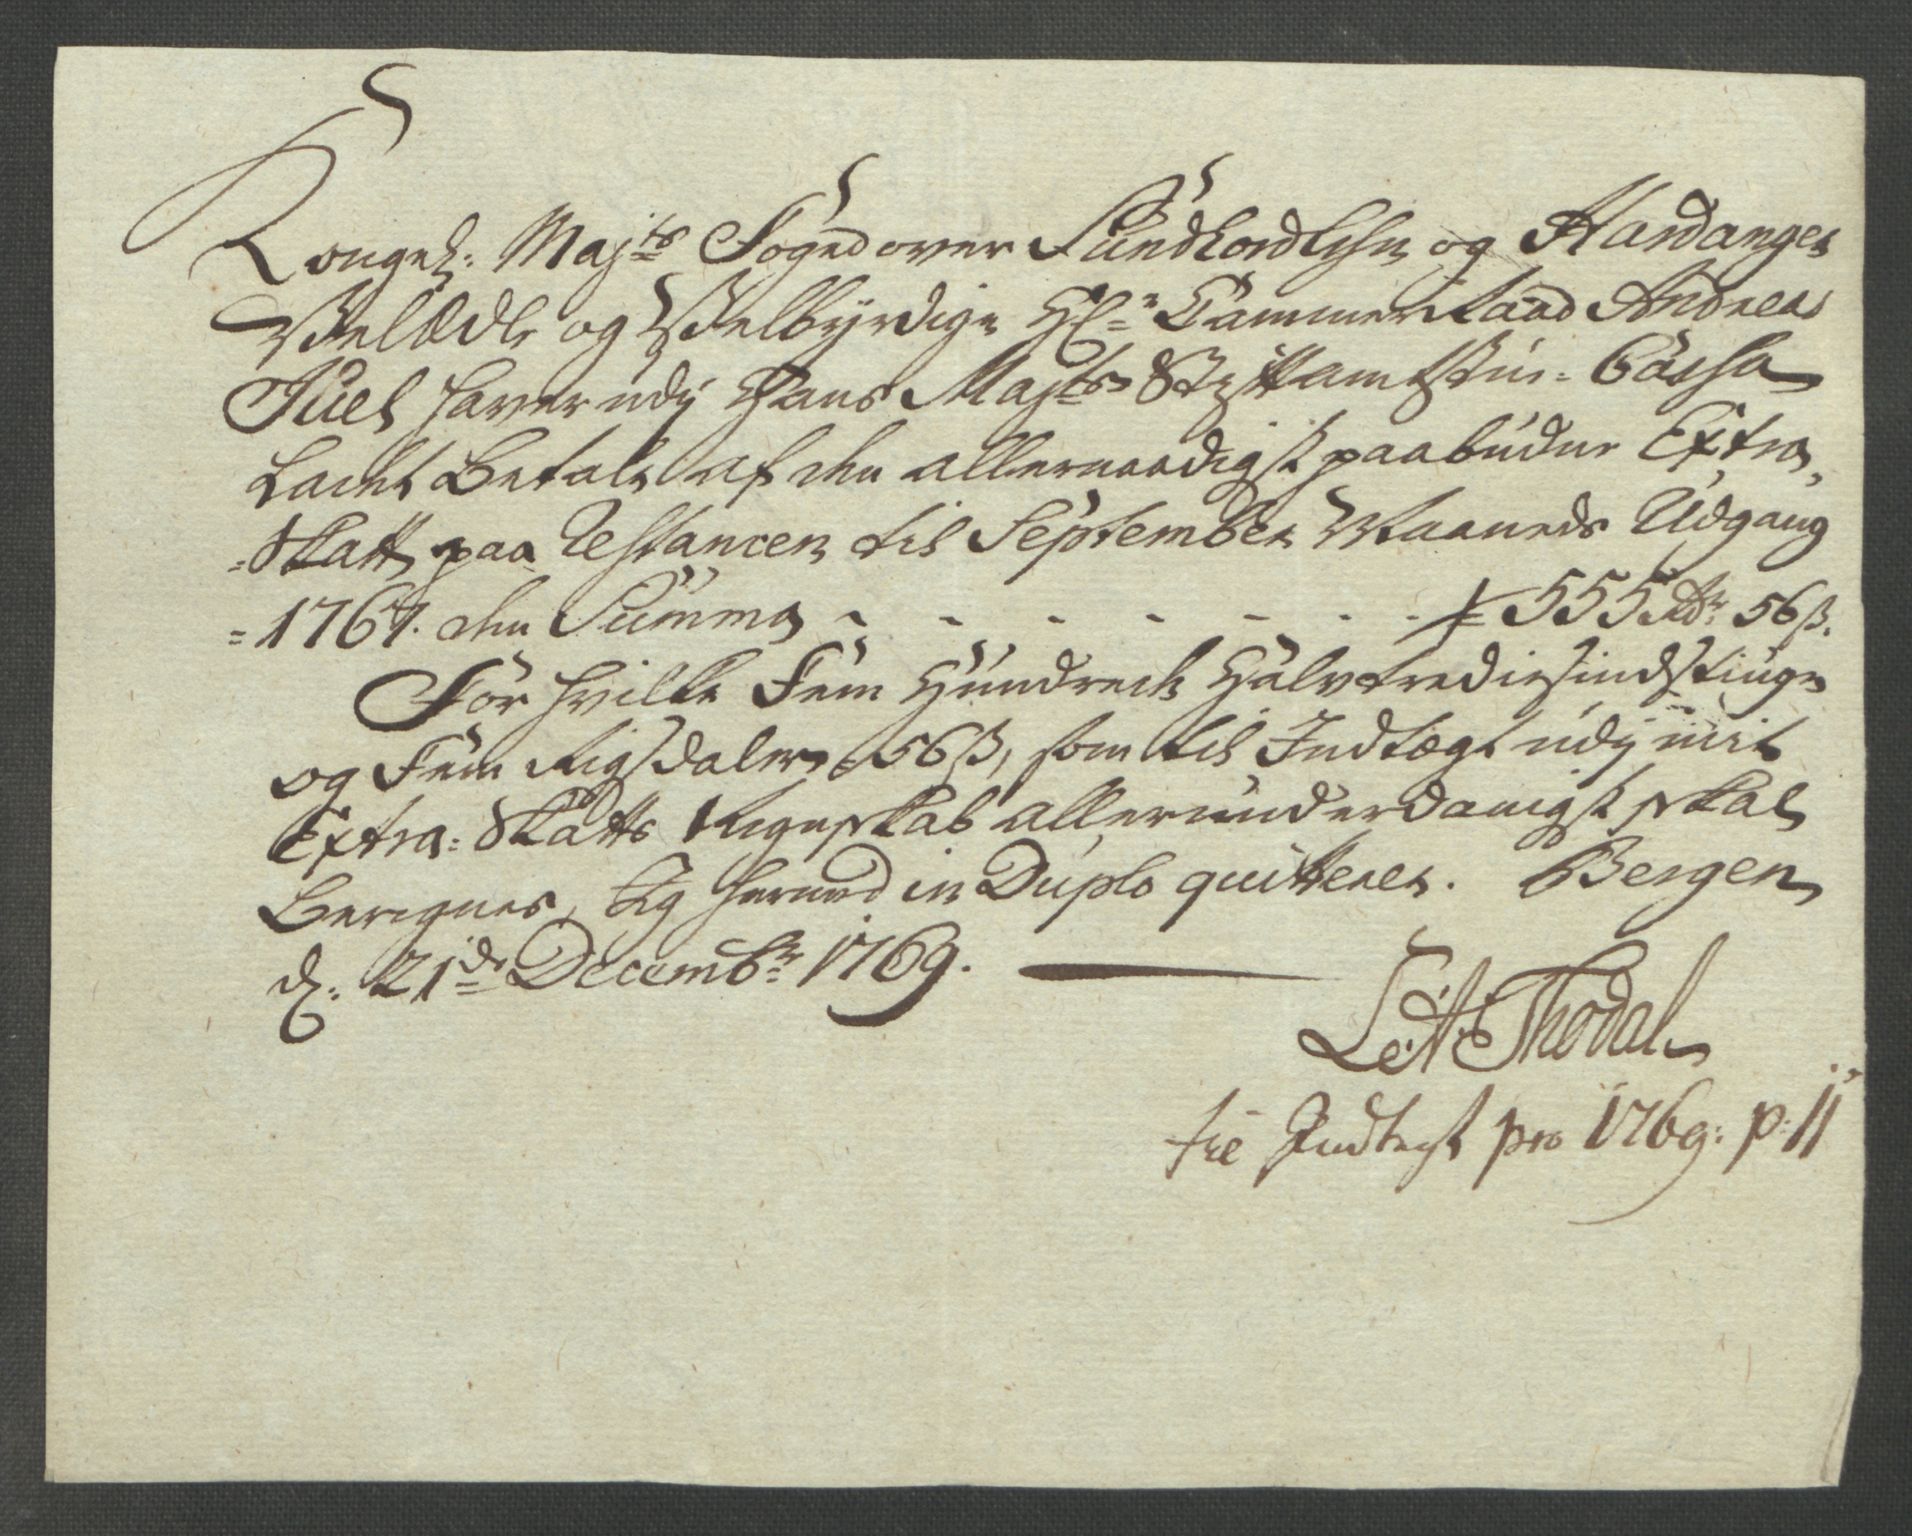 Kongel: Maj:ts Foged over Sundhordlehn og Hardanger
Velædle og Velbyrdige Hr: Cammer Raad Andreas
Juel haver udj Hans Maj:ts Stiftamtstue-Cassa
ladet Betale af den allernaadigst paabudne Extra
=Skatt paa Restancen til September Maaneds Udgang
=1767. den Summa - - - - - - - 555 Rdr: 56 ß.
For hvilke Fem Hundrede Halvtrediesindstiuge
og Fem Rigsdaler 56 ß, som til Indtægt udj mit
Extra-Skatts Regnskab allerunderdanigst skal
Beregnes, Jeg hermed in Duplo quitterer. Bergen
d: 21de Decembr: 1769.
L: A: Thodal
til Indtegt pro 1769: p: 11